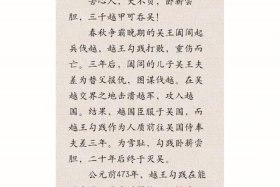 苦心人，天不负，卧薪尝
胆，三千越甲可吞吴！
春秋争霸晚期的吴王阖闾起
兵伐越，越王勾践打败，重伤而
亡。三年后，阖闾的儿子吴王夫
差为替父报仇，图谋伐越。在吴
越交界之地击溃越军，攻入越
国。结果，越国臣服于吴国，而
越王勾践作为人质前往吴国侍奉
夫差三年。为雪耻，勾践卧薪尝
胆，二十年后终于灭吴。
公元前473年，越王勾践在能